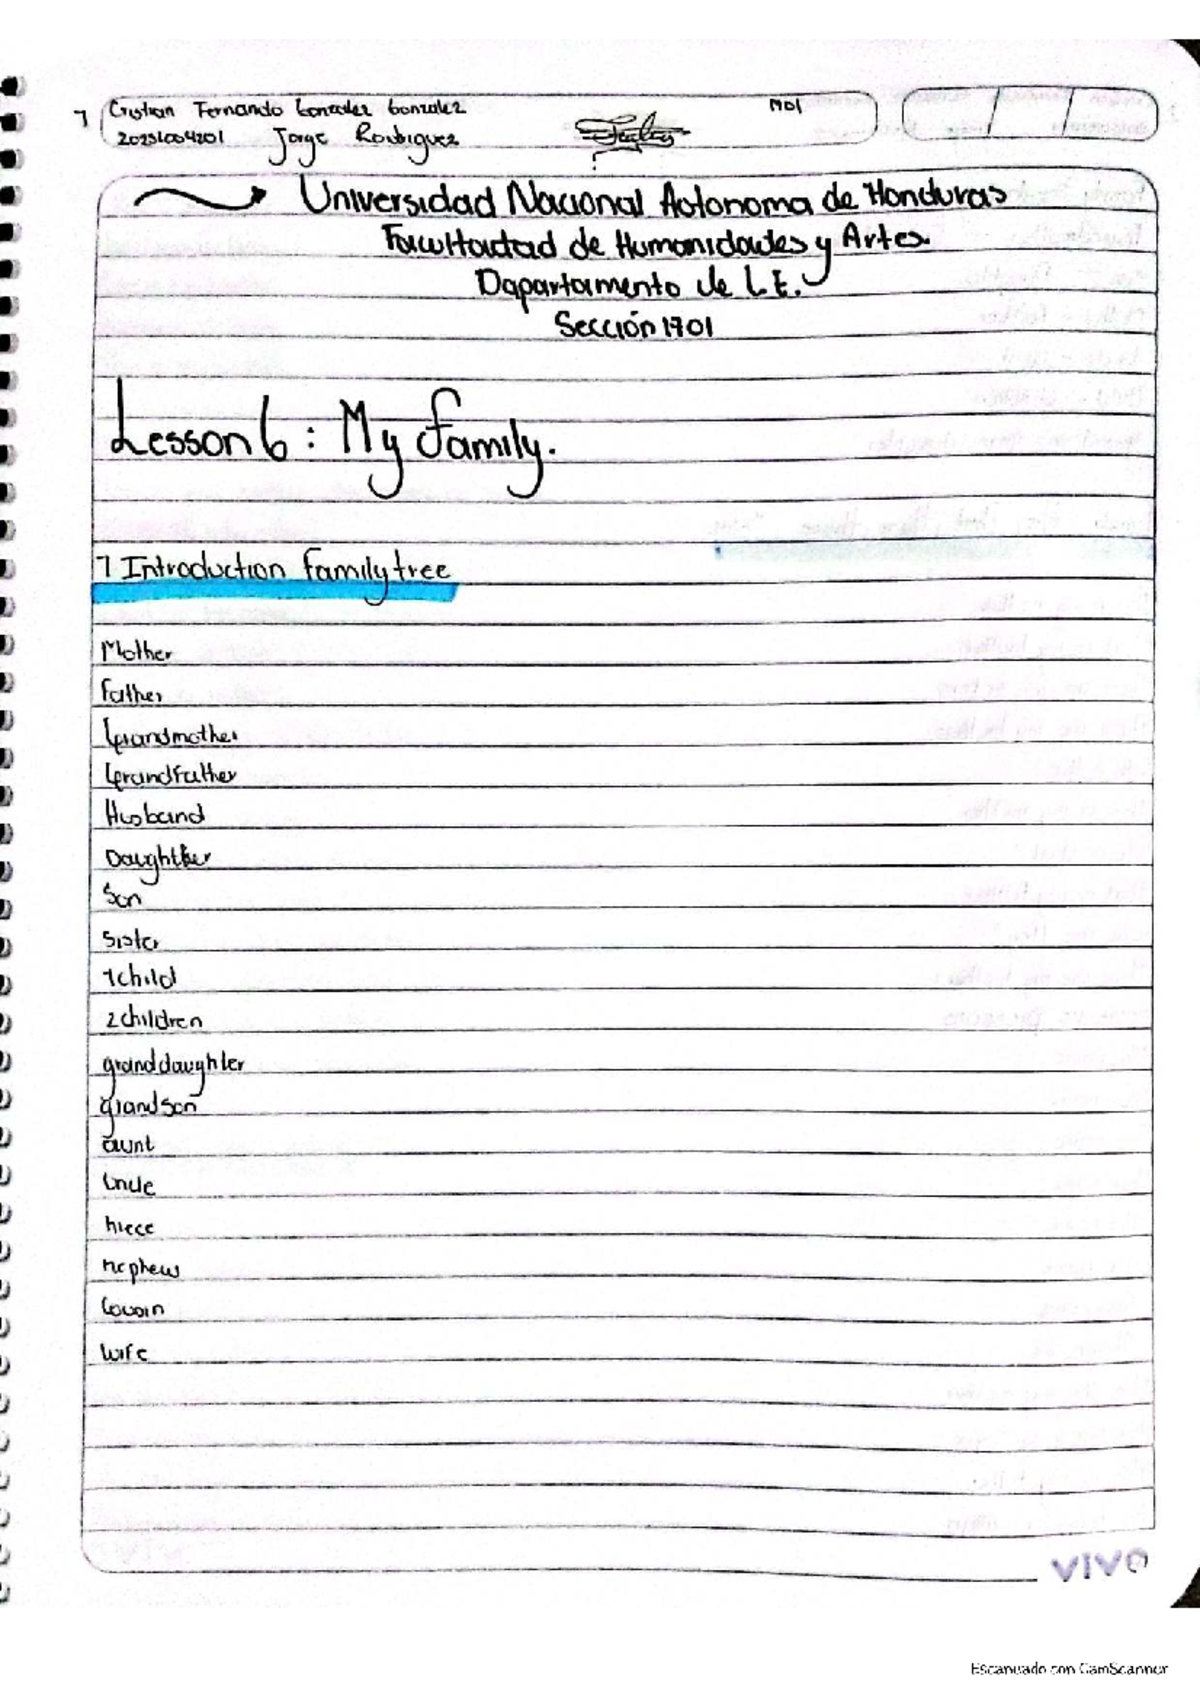 7 Cristian Fernando Gonzalez Gonzalez 1701
20231004201 Jorge Rodriguez
Universidad Nacional Autonoma de Honduras
Facultadad de Humanidades y Artes.
Dapartamento de L.E.
Sección 1701
Lesson 6 : My family.
7 Introduction family tree
Mother
father
Grandmother
Grandfather
Husband
Daughther
Son
Sister
1 child
2 children
granddaughter
grandson
aunt
Uncle
niece
nephew
Cousin
wife
VIVO
Escanuado con CamScanner